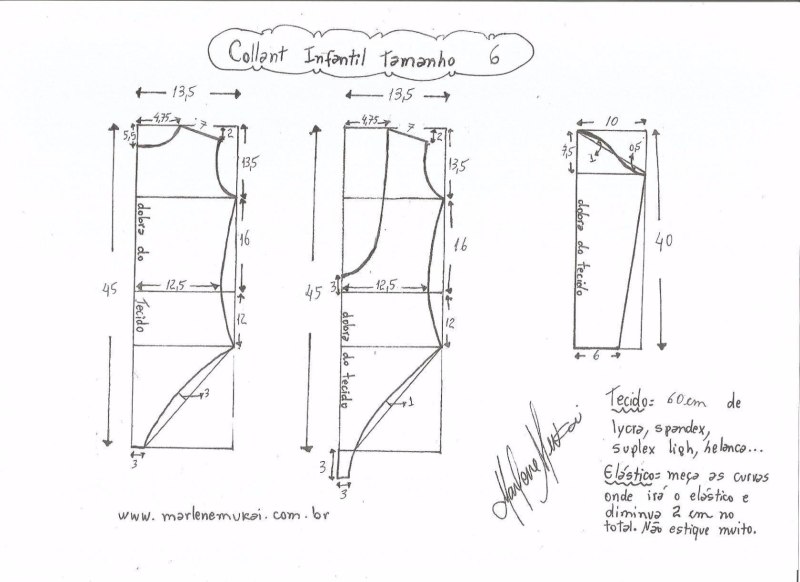 Collant Infantil Tamanho 6
13,5
4,75
7
2
5,5
13,5
45
dobra do Tecido
16
12,5
12
3
3
13,5
4,75
7
2
13,5
16
3
12,5
45
12
dobra do tecido
1
3
3
10
7,5
1
0,5
dobra do tecido
40
6
Tecido= 60cm de
lycra, spandex,
suplex ligh, helanca...
Elástico= meça as curvas
onde irá o elástico e
diminua 2 cm no
total. Não estique muito.
Marlene Mukai
www.marlenemukai.com.br